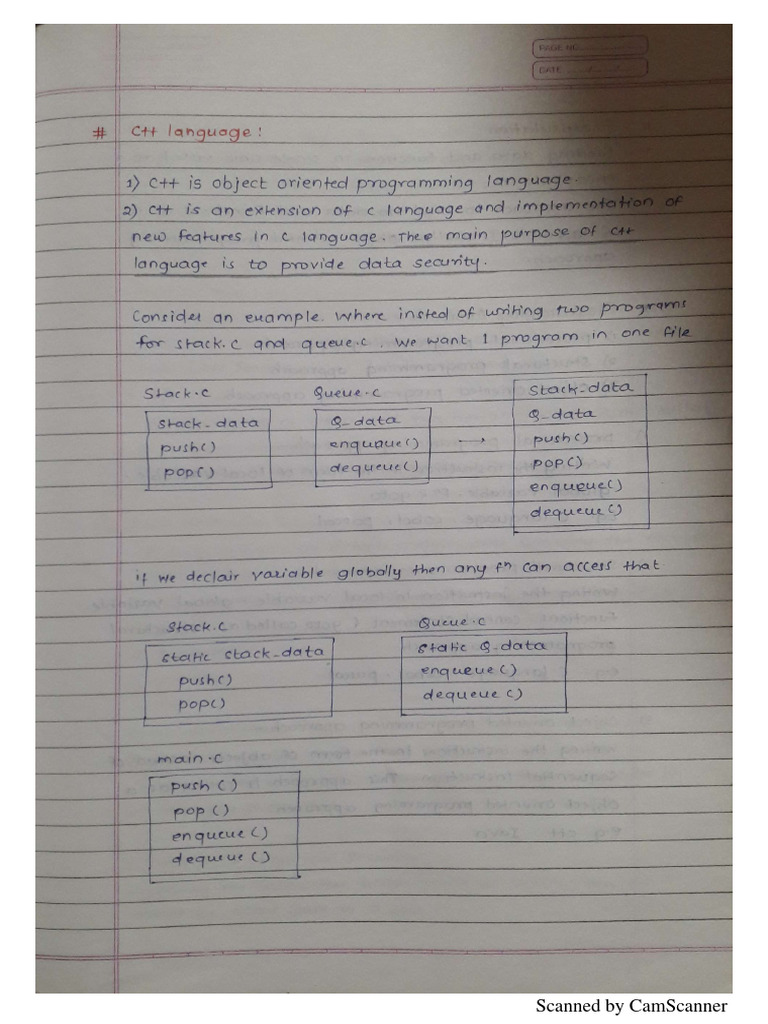 PAGE NO.
DATE
# C++ language :
1) C++ is object oriented programming language.
2) C++ is an extension of c language and implementation of
new features in c language. The main purpose of c++
language is to provide data security.
Consider an example. Where insted of writing two programs
for stack.c and queue.c. We want 1 program in one file
Stack.c Queue.c Stack-data
stack-data Q-data Q-data
push() enqueue() → push()
pop() dequeue() pop()
enqueue()
dequeue()
if we declair variable globally then any fn can access that
Stack.c Queue.c
static stack-data static Q-data
push() enqueue()
pop() dequeue()
main.c
push()
pop()
enqueue()
dequeue()
Scanned by CamScanner